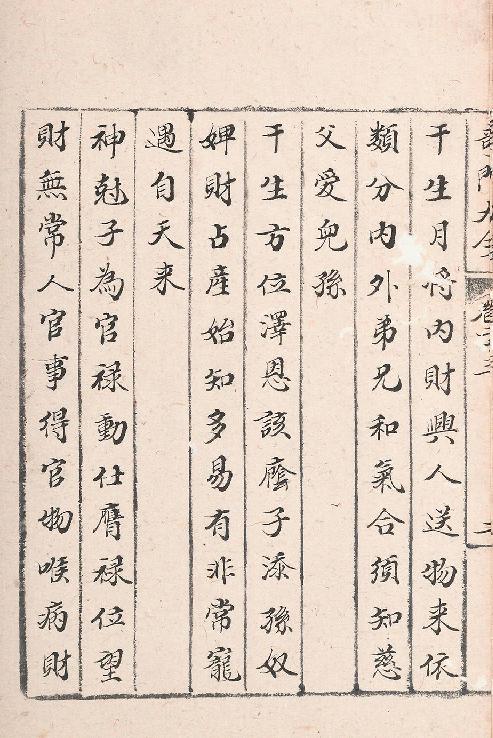 干生月將内財興人送物来依
類分内外弟兄和氣合須知慈
父愛兒孫
干生方位澤恩該廕子添孫奴
婢財占產始知多易有非常寵
遇自天来
神尅子為官禄動仕膺禄位望
財無常人官事得官物喉病財